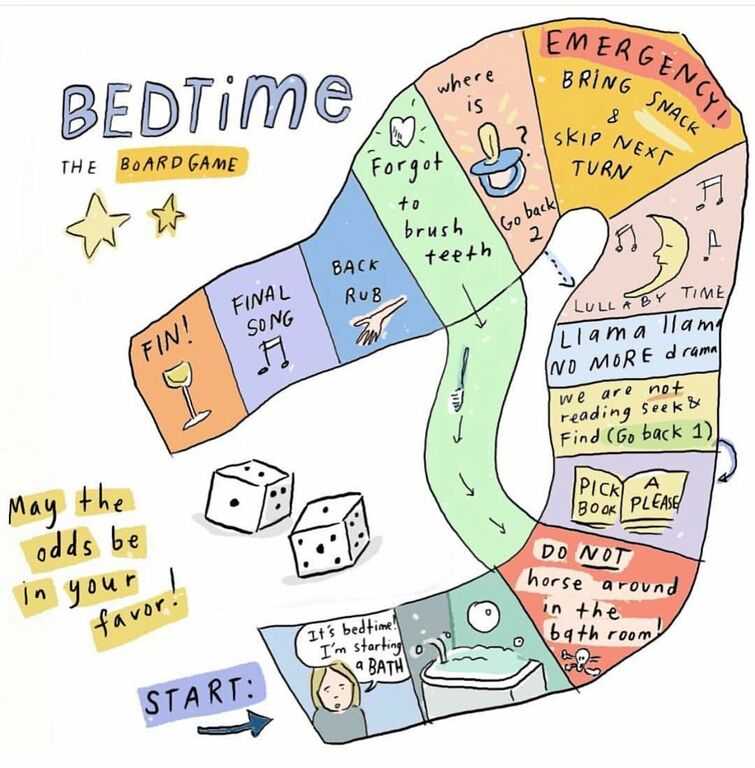 BEDTime
THE BOARD GAME
START:
It's bedtime!
I'm starting
a BATH
DO NOT
horse around
in the
bath room!
PICK A
BOOK PLEASE
we are not
reading Seek &
Find (Go back 1)
Llama llama
NO MORE drama
LULLABY TIME
EMERGENCY!
BRING SNACK
&
SKIP NEXT
TURN
where
is
?
Go back
2
Forgot
to
brush
teeth
BACK
RUB
FINAL
SONG
FIN!
May the
odds be
in your
favor!